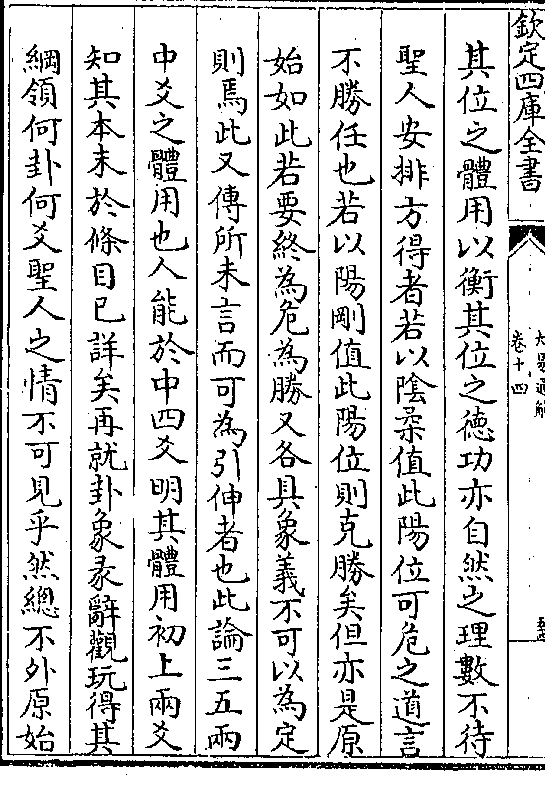 欽定四庫全書
大易通解
卷十四
其位之體用以衡其位之德功亦自然之理數不待
聖人安排方得者若以陰柔值此陽位可危之道言
不勝任也若以陽剛值此陽位則克勝矣但亦是原
始如此若要終為危為勝又各具象義不可以為定
則焉此又傳所未言而可為引伸者也此論三五兩
中爻之體用也人能於中四爻明其體用初上兩爻
知其本末於條目已詳矣再就卦象彖辭觀玩得其
綱領何卦何爻聖人之情不可見乎然總不外原始